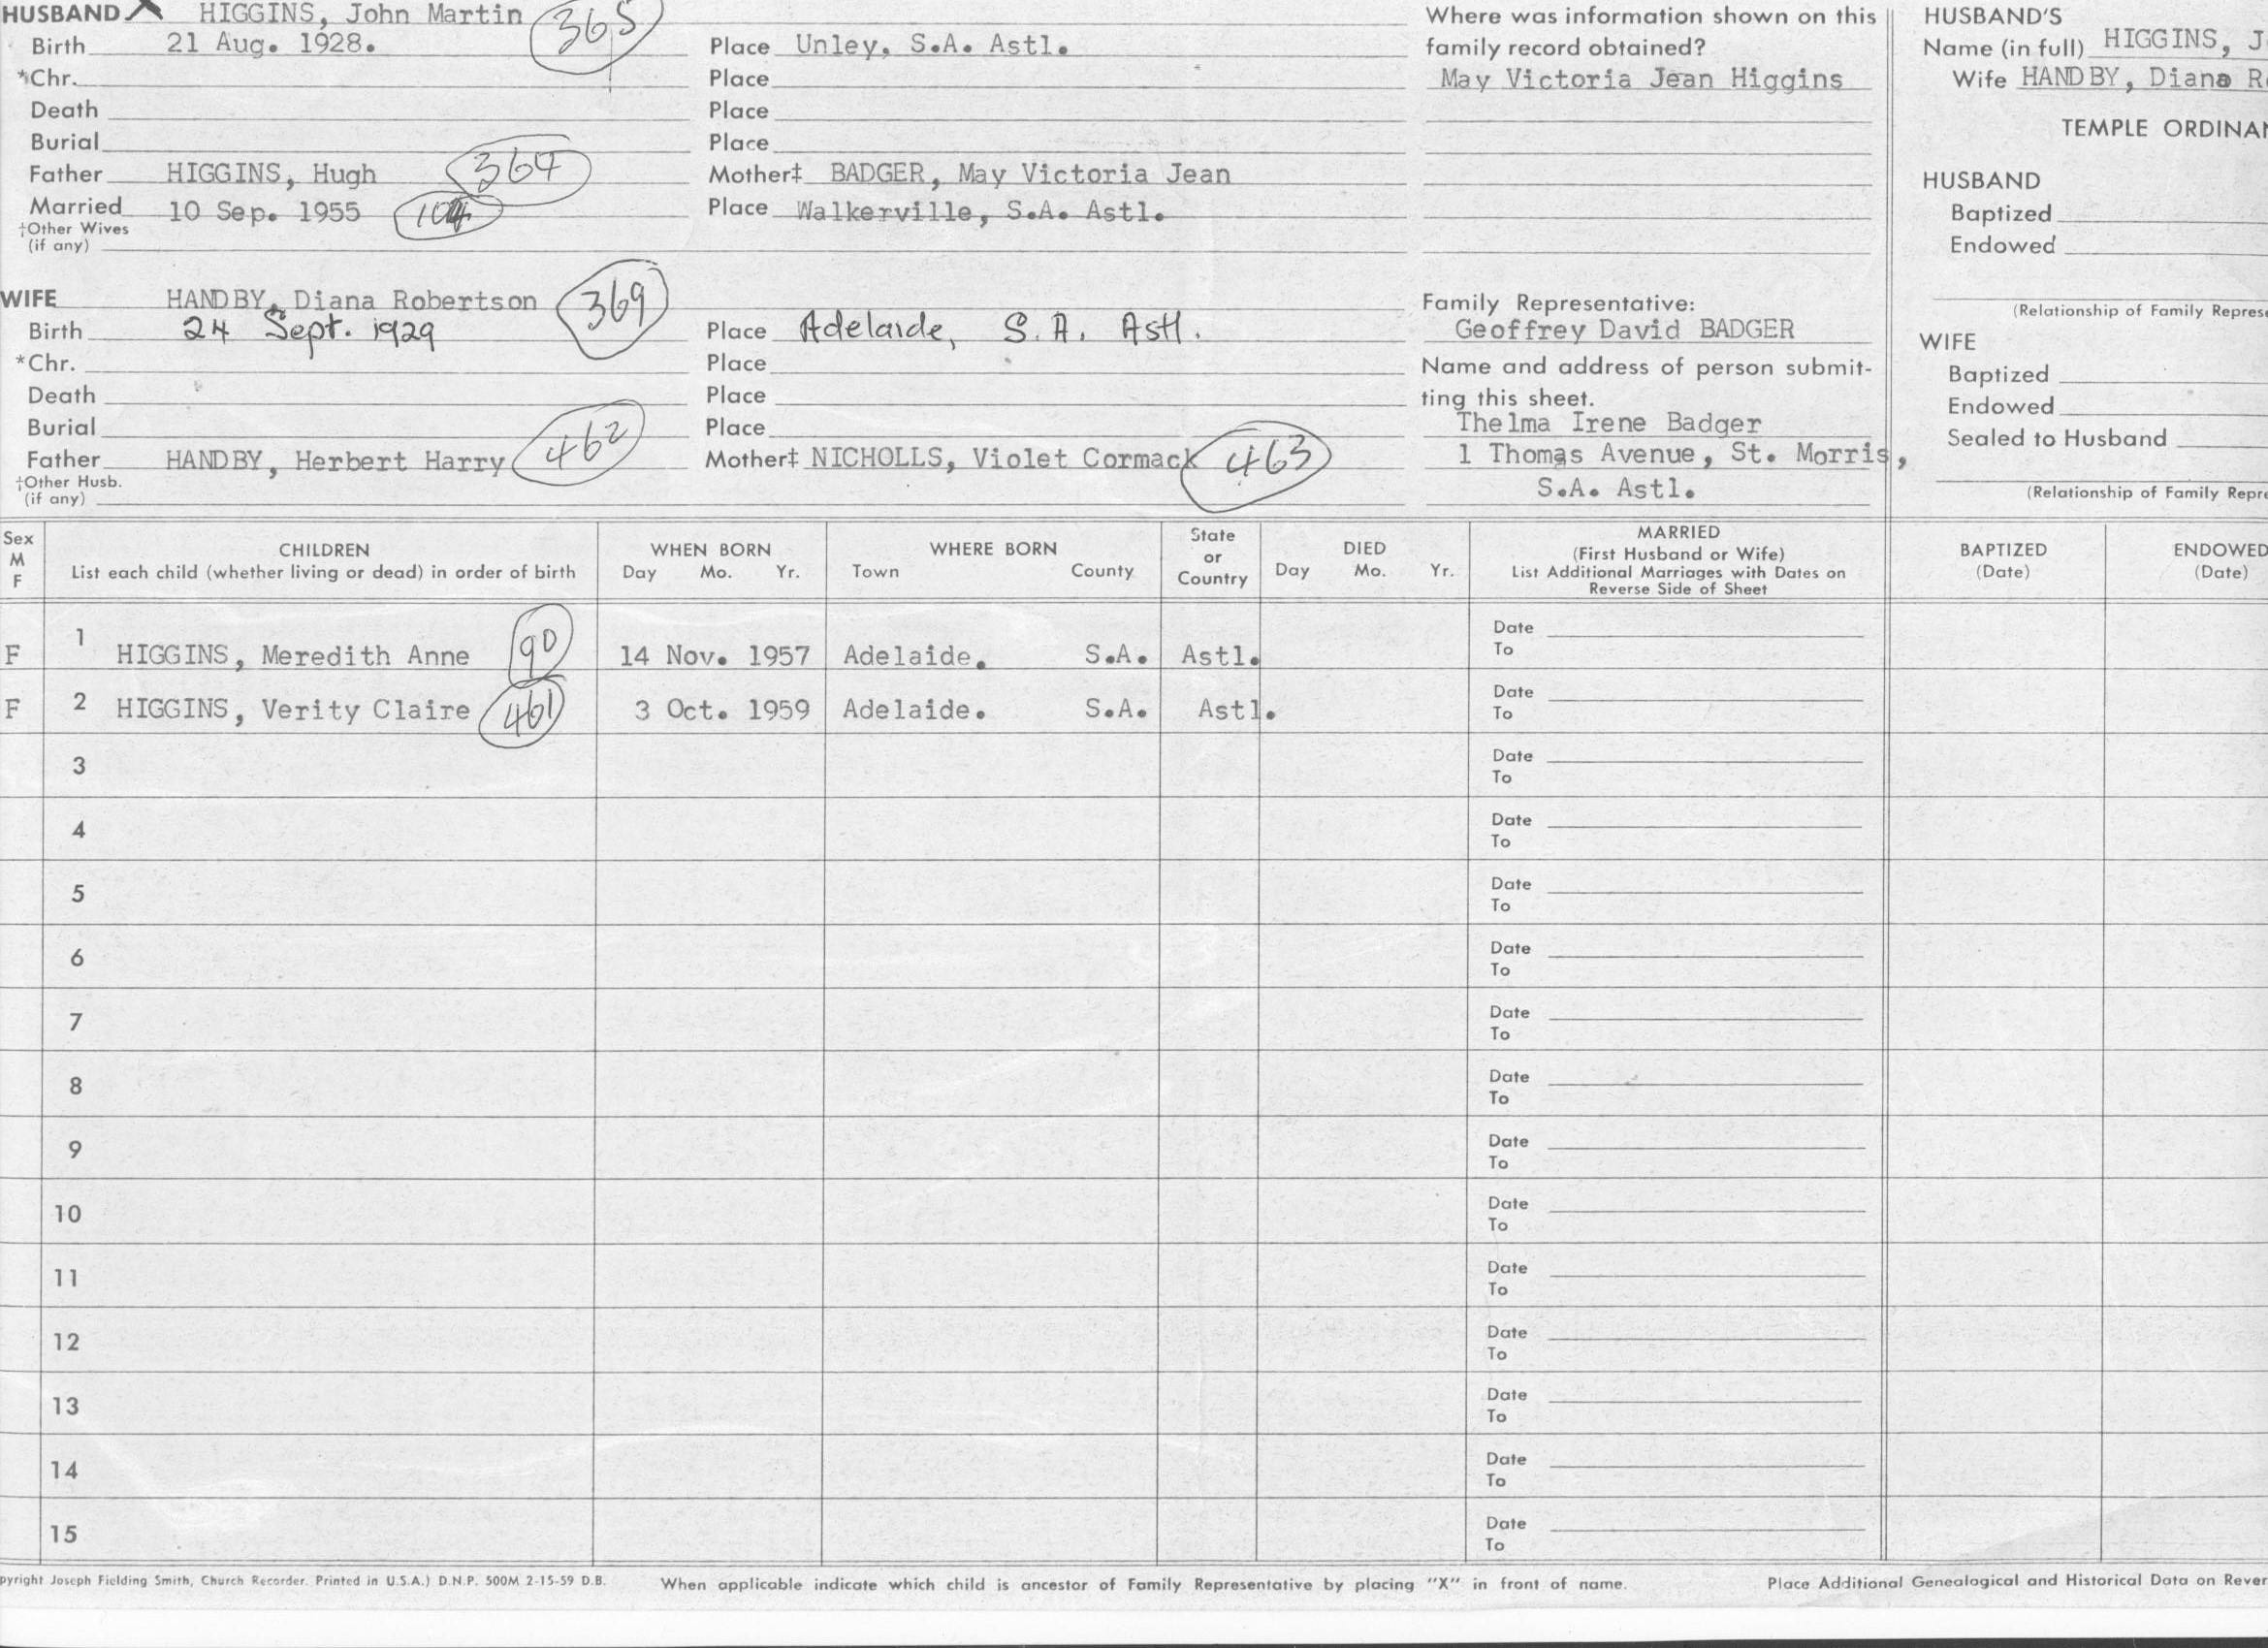 HUSBAND X HIGGINS, John Martin 365
Birth 21 Aug. 1928. Place Unley, S.A. Astl.
*Chr. Place
Death Place
Burial Place
Father HIGGINS, Hugh 364 Mother‡ BADGER, May Victoria Jean
Married 10 Sep. 1955 104 Place Walkerville, S.A. Astl.
†Other Wives
(if any)
WIFE HANDBY, Diana Robertson 369
Birth 24 Sept. 1929 Place Adelaide, S.A. Astl.
*Chr. Place
Death Place
Burial Place
Father HANDBY, Herbert Harry 462 Mother‡ NICHOLLS, Violet Cormack 463
†Other Husb.
(if any)
Where was information shown on this
family record obtained?
May Victoria Jean Higgins
Family Representative:
Geoffrey David BADGER
Name and address of person submit-
ting this sheet.
Thelma Irene Badger
1 Thomas Avenue, St. Morris,
S.A. Astl.
HUSBAND'S
Name (in full) HIGGINS, J
Wife HANDBY, Diana R
TEMPLE ORDINA
HUSBAND
Baptized
Endowed
(Relationship of Family Repres
WIFE
Baptized
Endowed
Sealed to Husband
(Relationship of Family Repre
Sex
M
F
CHILDREN
List each child (whether living or dead) in order of birth
WHEN BORN
Day Mo. Yr.
WHERE BORN
Town County
State
or
Country
DIED
Day Mo. Yr.
MARRIED
(First Husband or Wife)
List Additional Marriages with Dates on
Reverse Side of Sheet
BAPTIZED
(Date)
ENDOWED
(Date)
Date
F 1 HIGGINS, Meredith Anne 90 14 Nov. 1957 Adelaide. S.A. Astl. To
Date
F 2 HIGGINS, Verity Claire 461 3 Oct. 1959 Adelaide. S.A. Astl. To
3 Date
To
4 Date
To
5 Date
To
6 Date
To
7 Date
To
8 Date
To
9 Date
To
10 Date
To
11 Date
To
12 Date
To
13 Date
To
14 Date
To
15 Date
To
pyright Joseph Fielding Smith, Church Recorder. Printed in U.S.A.) D.N.P. 500M 2-15-59 D.B. When applicable indicate which child is ancestor of Family Representative by placing "X" in front of name. Place Additional Genealogical and Historical Data on Rever